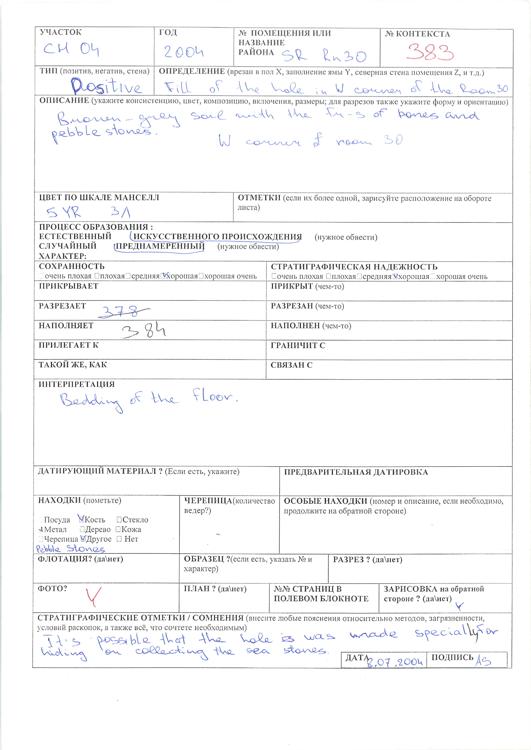 УЧАСТОК ГОД № ПОМЕЩЕНИЯ ИЛИ НАЗВАНИЕ РАЙОНА № КОНТЕКСТА
CH 04 2004 SR Rn30 383
ТИП (позитив, негатив, стена) ОПРЕДЕЛЕНИЕ (врезан в пол X, заполнение ямы Y, северная стена помещения Z, и т.д.)
Positive Fill of the hole in W corner of the Room 30
ОПИСАНИЕ (укажите консистенцию, цвет, композицию, включения, размеры; для разрезов также укажите форму и ориентацию)
Brown-grey soil with the fr-s of bones and
pebble stones.
W corner of room 30
ЦВЕТ ПО ШКАЛЕ МАНСЕЛЛ ОТМЕТКИ (если их более одной, зарисуйте расположение на обороте
листа)
5 YR 3/1
ПРОЦЕСС ОБРАЗОВАНИЯ :
ЕСТЕСТВЕННЫЙ ИСКУССТВЕННОГО ПРОИСХОЖДЕНИЯ (нужное обвести)
СЛУЧАЙНЫЙ ПРЕДНАМЕРЕННЫЙ (нужное обвести)
ХАРАКТЕР:
СОХРАННОСТЬ СТРАТИГРАФИЧЕСКАЯ НАДЕЖНОСТЬ
очень плохая □плохая□средняя☑хорошая□хорошая очень □очень плохая □плохая□средняя☑хорошая□хорошая очень
ПРИКРЫВАЕТ ПРИКРЫТ (чем-то)
РАЗРЕЗАЕТ 378 РАЗРЕЗАН (чем-то)
НАПОЛНЯЕТ 384 НАПОЛНЕН (чем-то)
ПРИЛЕГАЕТ К ГРАНИЧИТ С
ТАКОЙ ЖЕ, КАК СВЯЗАН С
ИНТЕРПРЕТАЦИЯ
Bedding of the floor.
ДАТИРУЮЩИЙ МАТЕРИАЛ ? (Если есть, укажите) ПРЕДВАРИТЕЛЬНАЯ ДАТИРОВКА
НАХОДКИ (пометьте) ЧЕРЕПИЦА(количество ведер?) ОСОБЫЕ НАХОДКИ (номер и описание, если необходимо, продолжите на обратной стороне)
Посуда ☑Кость □Стекло
Метал □Дерево □Кожа
□Черепица ☑Другое □ Нет
Pebble Stones
ФЛОТАЦИЯ? (да\нет) ОБРАЗЕЦ ?(если есть, указать № и характер) РАЗРЕЗ ? (да\нет)
ФОТО? ПЛАН ? (да\нет) №№ СТРАНИЦ В ПОЛЕВОМ БЛОКНОТЕ ЗАРИСОВКА на обратной стороне ? (да\нет)
СТРАТИГРАФИЧЕСКИЕ ОТМЕТКИ / СОМНЕНИЯ (внесите любые пояснения относительно методов, загрязненности,
условий раскопок, а также всё, что сочтете необходимым)
It's possible that the hole is was made specially for
hiding on collecting the sea stones.
ДАТА .07.2004 ПОДПИСЬ AS